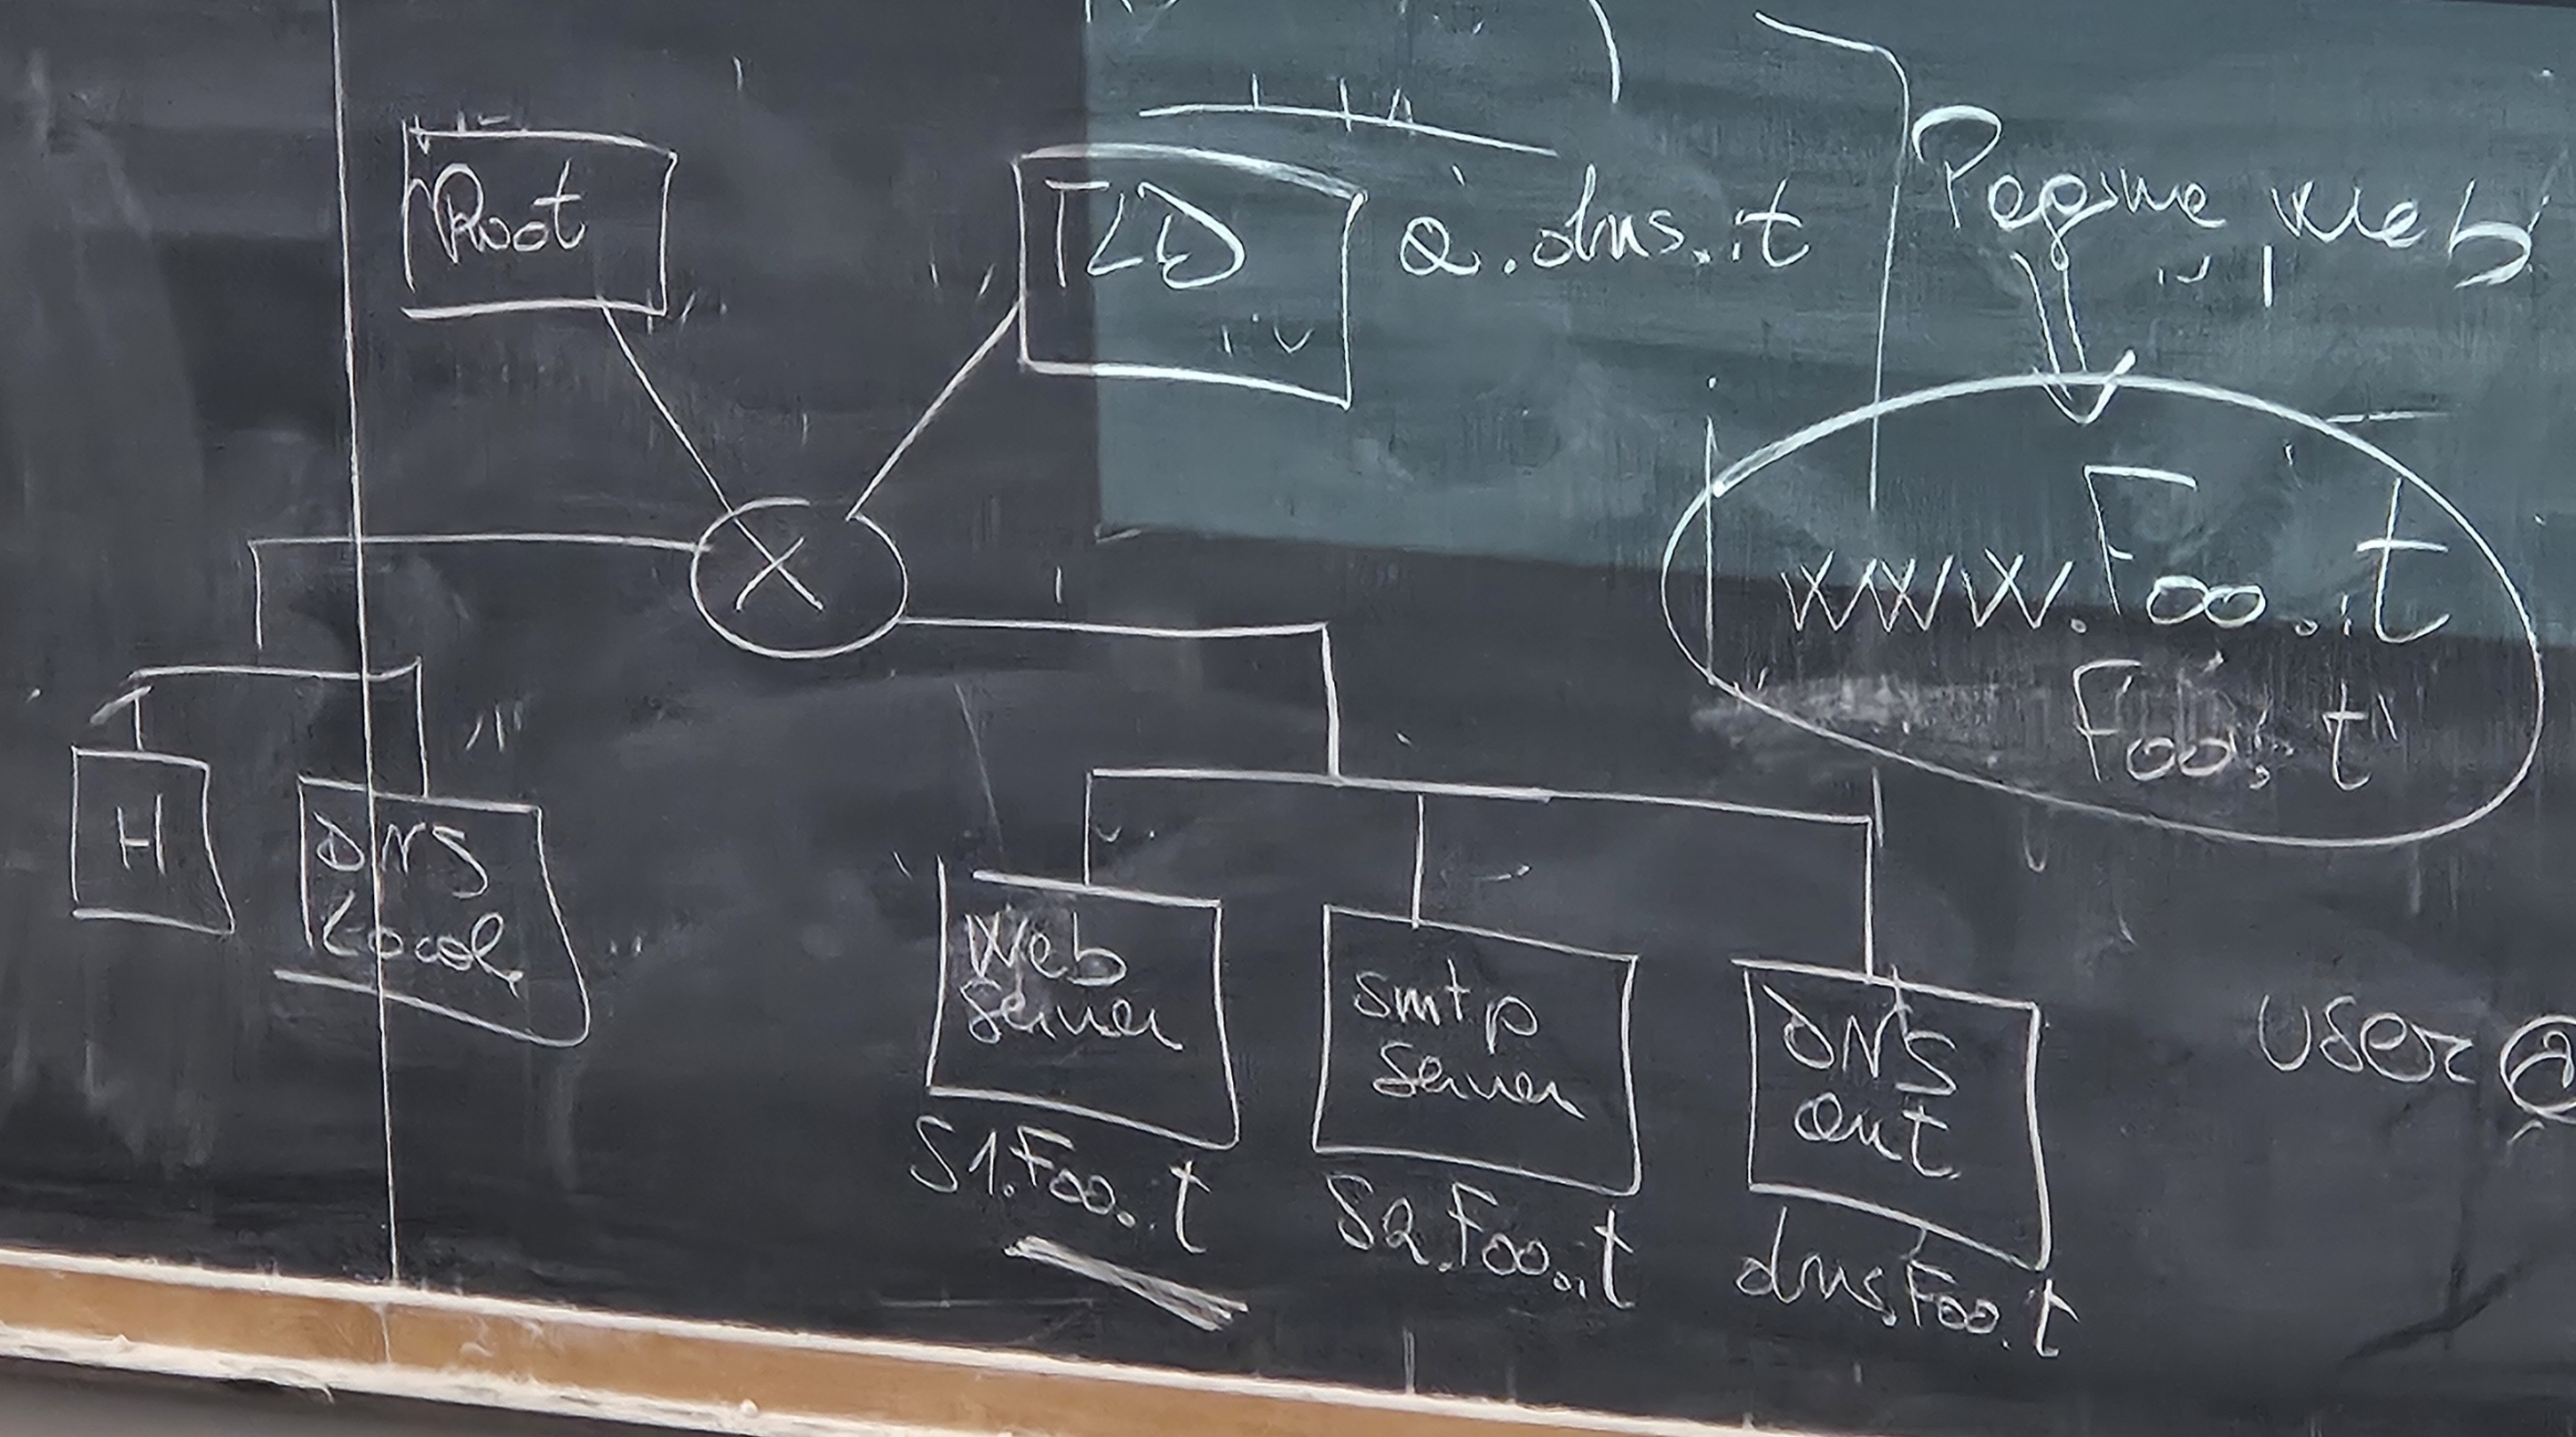 Root
TLD
a.dns.it
Pagine web
www.Foo.it
Foo.it
H
DNS
Local
Web
Server
S1.Foo.it
smtp
Server
S2.Foo.it
DNS
aut
dns.Foo.it
user@